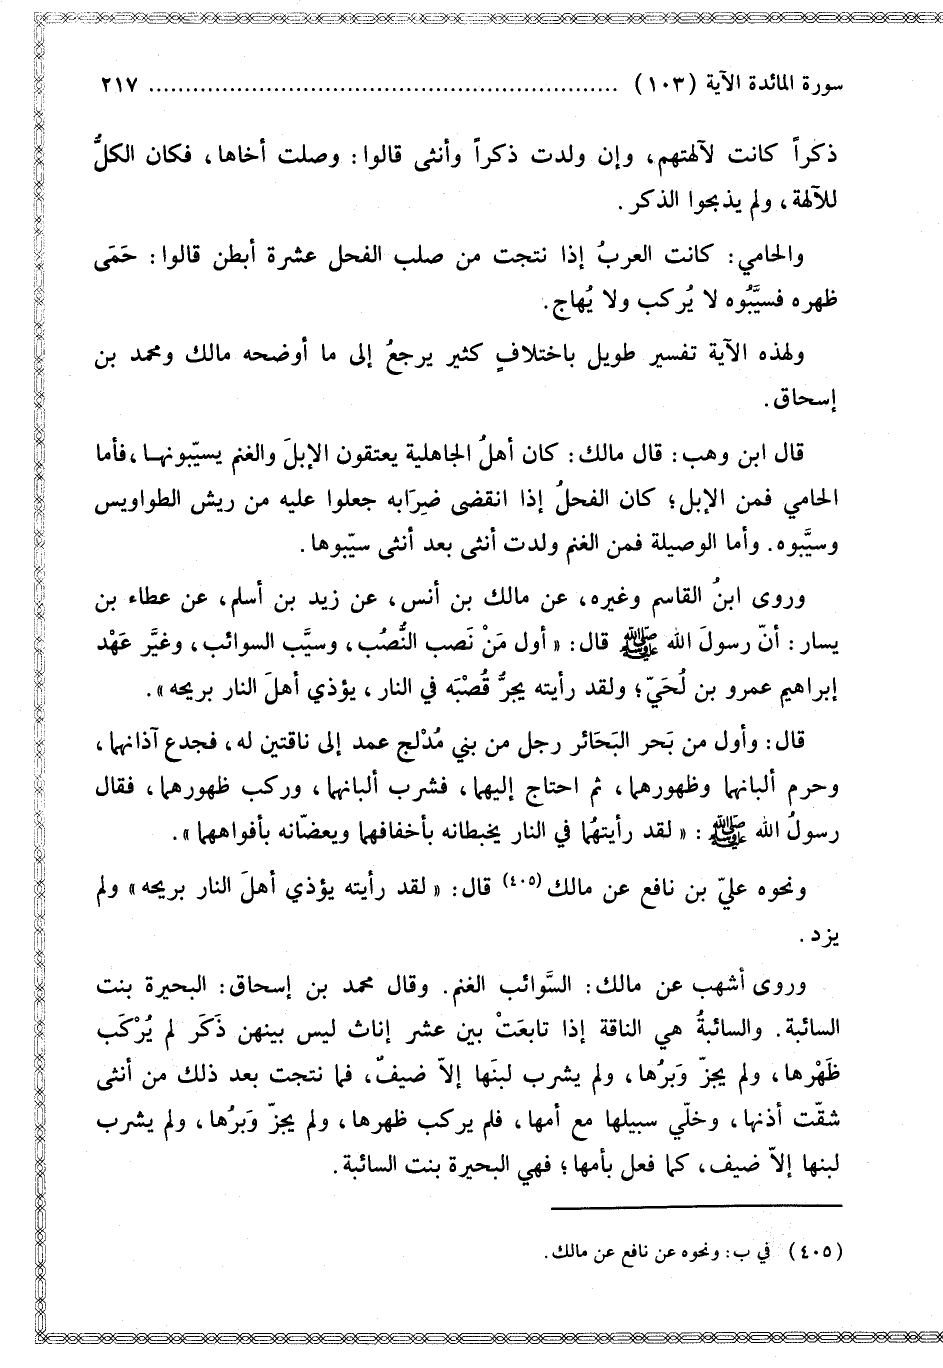 سورة المائدة الآية (١٠٣) ................................................................ ٢١٧
ذكراً كانت لآلهتهم، وإن ولدت ذكراً وأنثى قالوا: وصلت أخاها، فكان الكلُّ
للآلهة، ولم يذبحوا الذكر.
والحامي: كانت العربُ إذا نتجت من صلب الفحل عشرة أبطن قالوا: حَمَى
ظهره فسيَّبُوه لا يُركب ولا يُهاج.
ولهذه الآية تفسير طويل باختلافٍ كثير يرجعُ إلى ما أوضحه مالك ومحمد بن
إسحاق.
قال ابن وهب: قال مالك: كان أهلُ الجاهلية يعتقون الإبلَ والغنم يسيّبونها، فأما
الحامي فمن الإبل؛ كان الفحلُ إذا انقضى ضِرَابه جعلوا عليه من ريش الطواويس
وسيَّبوه. وأما الوصيلة فمن الغنم ولدت أنثى بعد أنثى سيّبوها.
وروى ابنُ القاسم وغيره، عن مالك بن أنس، عن زيد بن أسلم، عن عطاء بن
يسار: أنّ رسولَ الله ﷺ قال: «أول مَنْ نَصب النُّصُب، وسيَّب السوائب، وغيَّر عَهْد
إبراهيم عمرو بن لُحَيّ؛ ولقد رأيته يجرُّ قُصْبَه في النار، يؤذي أهلَ النار بريحه».
قال: وأول من بَحر البَحَائر رجل من بني مُدْلج عمد إلى ناقتين له، فجدع آذانهما،
وحرم ألبانهما وظهورهما، ثم احتاج إليهما، فشرب ألبانهما، وركب ظهورهما، فقال
رسولُ الله ﷺ: «لقد رأيتهُما في النار يخبطانه بأخفافهما ويعضّانه بأفواههما».
ونحوه عليّ بن نافع عن مالك (٤٠٥) قال: «لقد رأيته يؤذي أهلَ النار بريحه» ولم
يزد.
وروى أشهب عن مالك: السَّوائب الغنم. وقال محمد بن إسحاق: البحيرة بنت
السائبة. والسائبةُ هي الناقة إذا تابعَتْ بين عشر إناث ليس بينهن ذَكَر لم يُرْكَب
ظَهْرها، ولم يجزّ وَبرُها، ولم يشرب لبنَها إلاّ ضيفٌ، فما نتجت بعد ذلك من أنثى
شقّت أذنها، وخلّي سبيلها مع أمها، فلم يركب ظهرها، ولم يجزّ وَبرُها، ولم يشرب
لبنها إلاّ ضيف، كما فعل بأمها؛ فهي البحيرة بنت السائبة.
(٤٠٥) في ب: ونحوه عن نافع عن مالك.